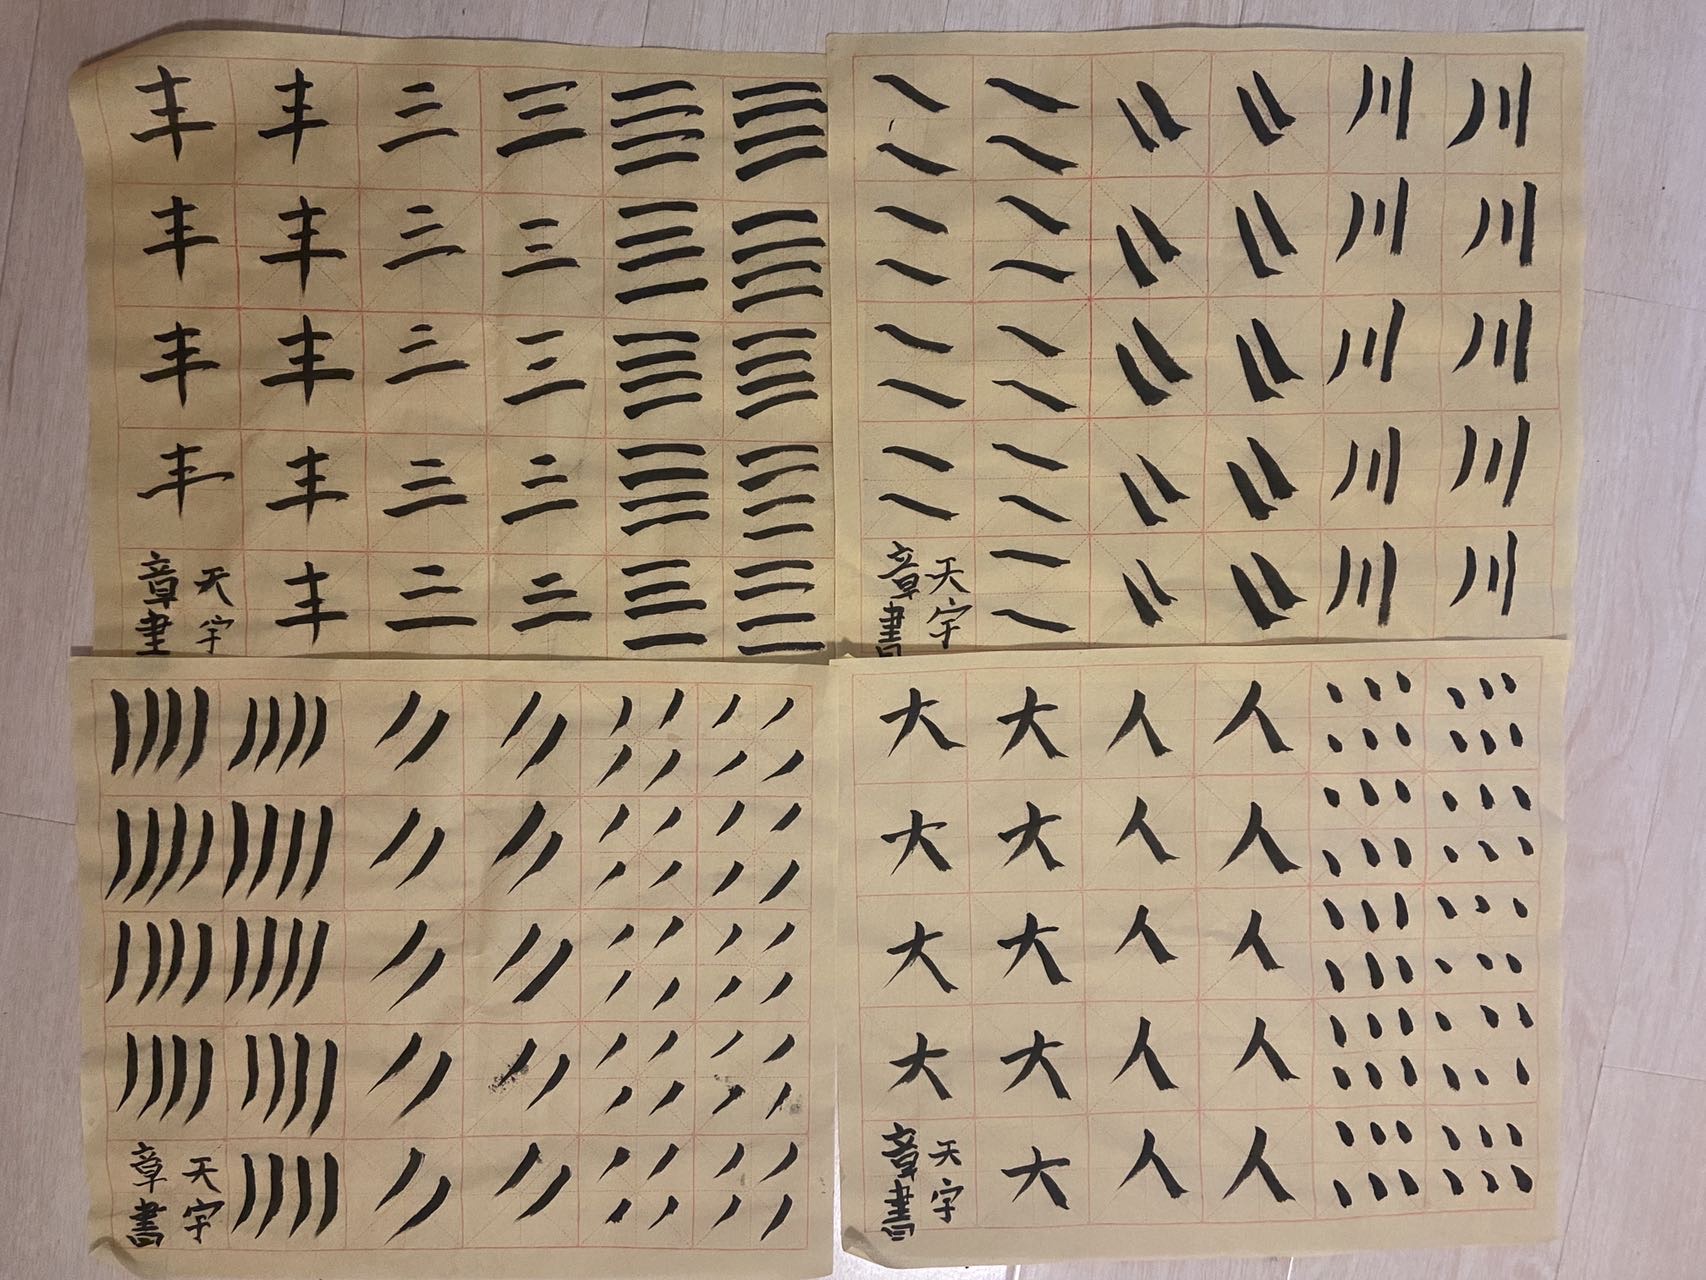 丰 丰 三 三
丰 丰 三 三
丰 丰 三 三
丰 丰 三 三
丰 三 三
天宇
章書
川 川
川 川
川 川
川 川
川 川
天宇
章書
天宇
章書
大 大 人 人
大 大 人 人
大 大 人 人
大 大 人 人
大 人 人
天宇
章書